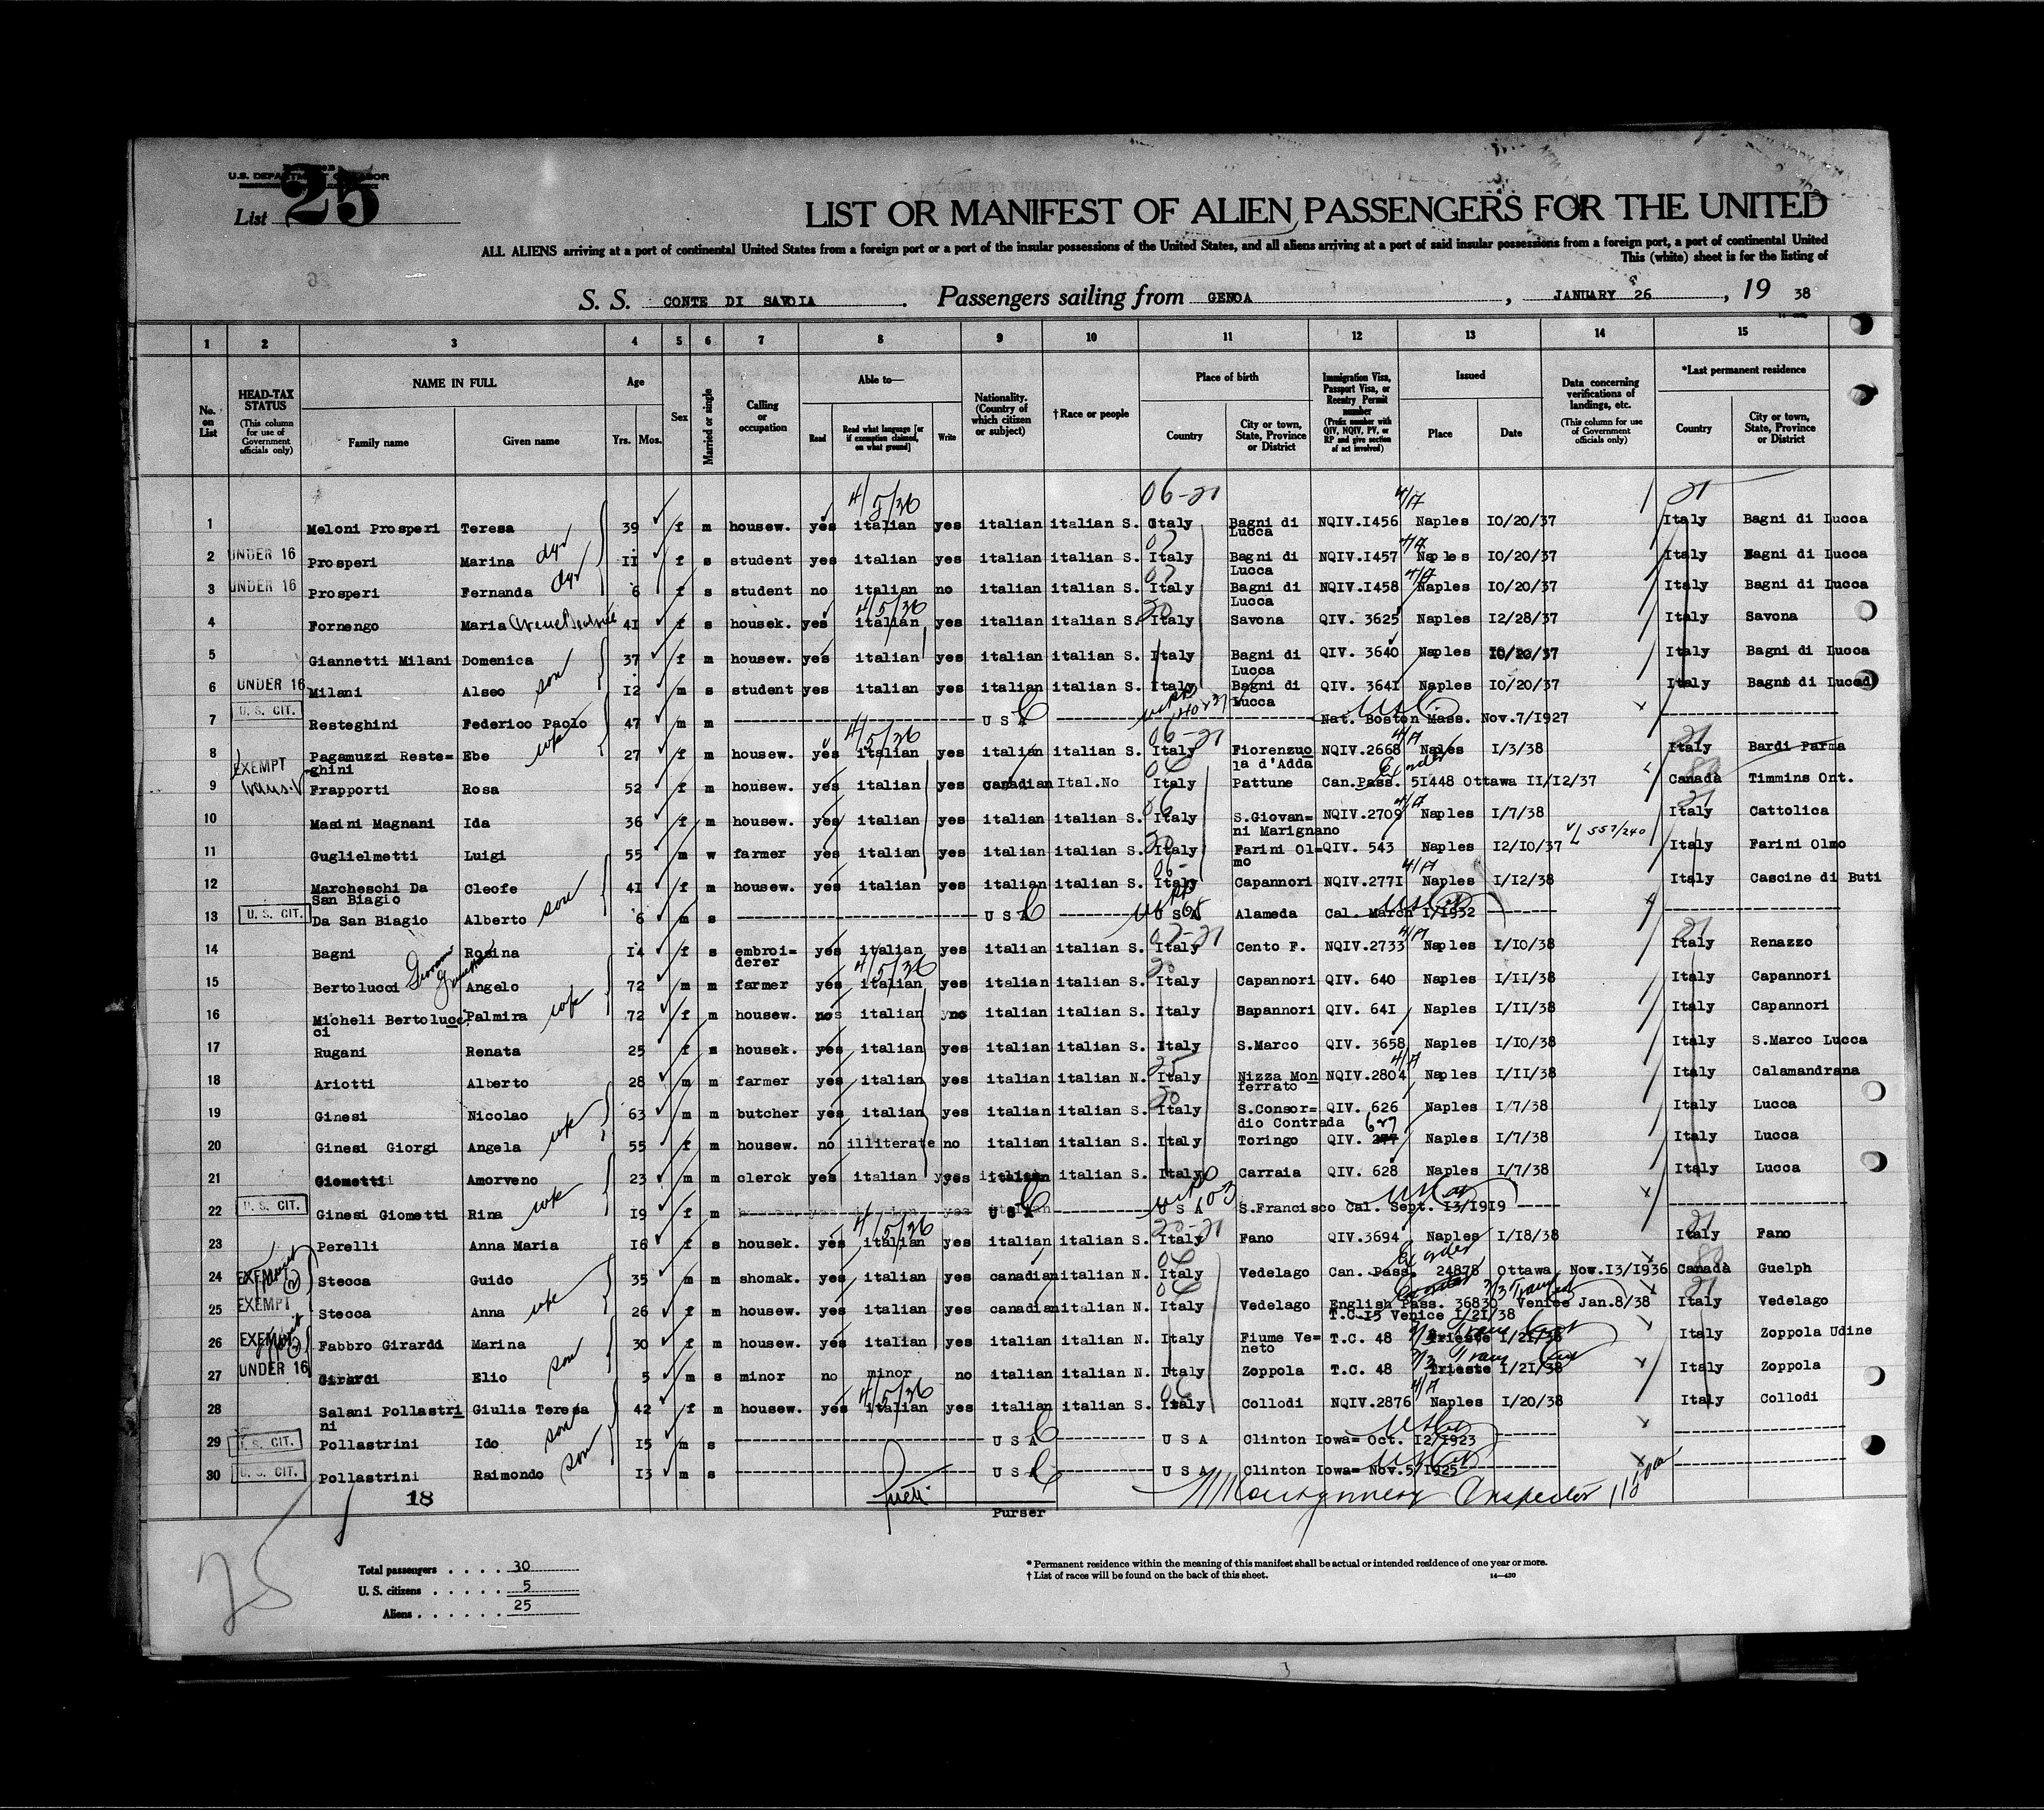 U.S. DEPARTMENT OF LABOR
List 25
LIST OR MANIFEST OF ALIEN PASSENGERS FOR THE UNITED
ALL ALIENS arriving at a port of continental United States from a foreign port or a port of the insular possessions of the United States, and all aliens arriving at a port of said insular possessions from a foreign port, a port of continental United
This (white) sheet is for the listing of
S. S. CONTE DI SAVOIA. Passengers sailing from GENOA, JANUARY 26, 19 38
1 2 3 4 5 6 7 8 9 10 11 12 13 14 15
No. on List
HEAD-TAX STATUS (This column for use of Government officials only)
NAME IN FULL Family name Given name
Age Yrs. Mos.
Sex
Married or single
Calling or occupation
Able to— Read Read what language [or if exemption claimed, on what ground] Write
Nationality. (Country of which citizen or subject)
†Race or people
Place of birth Country City or town, State, Province or District
Immigration Visa, Passport Visa, or Reentry Permit number (Prefix number with QIV, NQIV, PV, or RP and give section of act involved)
Issued Place Date
Data concerning verifications of landings, etc. (This column for use of Government officials only)
*Last permanent residence Country City or town, State, Province or District
4/5/36 06-21 4/17 21
1 Meloni Prosperi Teresa 39 f m housew. yes italian yes italian italian S. Italy Bagni di Lucca NQIV.I456 Naples IO/20/37 Italy Bagni di Lucca
2 UNDER 16 Prosperi Marina dgr II f s student yes italian yes italian italian S. Italy Bagni di Lucca NQIV.I457 Naples IO/20/37 Italy Bagni di Lucca
3 UNDER 16 Prosperi Fernanda dgr 6 f s student no italian no italian italian S. Italy Bagni di Lucca NQIV.I458 Naples IO/20/37 Italy Bagni di Lucca
4 Fornengo Maria 4I f s housek. yes italian yes italian italian S. Italy Savona QIV. 3625 Naples I2/28/37 Italy Savona
5 Giannetti Milani Domenica 37 f m housew. yes italian yes italian italian S. Italy Bagni di Lucca QIV. 3640 Naples IO/20/37 Italy Bagni di Lucca
6 UNDER 16 Milani Alseo son I2 m s student yes italian yes italian italian S. Italy Bagni di Lucca QIV. 364I Naples IO/20/37 Italy Bagni di Lucca
7 U. S. CIT. Resteghini Federico Paolo 47 m m U S A Nat. Boston Mass. Nov.7/I927
8 Pagamuzzi Reste=ghini Ebe wife 27 f m housew. yes italian yes italian italian S. Italy Fiorenzuola d'Adda NQIV.2668 Naples I/3/38 Italy Bardi Parma
9 EXEMPT Frapporti Rosa 52 f m housew. yes italian yes canadian Ital.No Italy Pattune Can.Pass. 5I448 Ottawa II/I2/37 Canada Timmins Ont.
10 Masini Magnani Ida 36 f m housew. yes italian yes italian italian S. Italy S.Giovan=ni Marignano NQIV.2709 Naples I/7/38 Italy Cattolica
11 Guglielmetti Luigi 55 m w farmer yes italian yes italian italian S. Italy Farini Ol=mo QIV. 543 Naples I2/IO/37 557/240 Italy Farini Olmo
12 Marcheschi Da San Biagio Cleofe 4I f m housew. yes italian yes italian italian S. Italy Capannori NQIV.277I Naples I/I2/38 Italy Cascine di Buti
13 U. S. CIT. Da San Biagio Alberto son 6 m s U S A U S A Alameda Cal. March I/I932
14 Bagni Rosina I4 f s embroi=derer yes italian yes italian italian S. Italy Cento F. NQIV.2733 Naples I/IO/38 Italy Renazzo
15 Bertolucci Angelo 72 m m farmer yes italian yes italian italian S. Italy Capannori QIV. 640 Naples I/II/38 Italy Capannori
16 Micheli Bertolucci Palmira wife 72 f m housew. no italian no italian italian S. Italy Bapannori QIV. 64I Naples I/II/38 Italy Capannori
17 Rugani Renata 25 f s housek. yes italian yes italian italian S. Italy S.Marco QIV. 3658 Naples I/IO/38 Italy S.Marco Lucca
18 Ariotti Alberto 28 m m farmer yes italian yes italian italian N. Italy Nizza Monferrato NQIV.2804 Naples I/II/38 Italy Calamandrana
19 Ginesi Nicolao 63 m m butcher yes italian yes italian italian S. Italy S.Consor=dio Contrada QIV. 626 Naples I/7/38 Italy Lucca
20 Ginesi Giorgi Angela wife 55 f m housew. no illiterate no italian italian S. Italy Toringo QIV. 627 Naples I/7/38 Italy Lucca
21 Giometti Amorveno 23 m m clerck yes italian yes italian italian S. Italy Carraia QIV. 628 Naples I/7/38 Italy Lucca
22 U. S. CIT. Ginesi Giometti Rina wife I9 f m U S A U S A S.Francisco Cal. Sept. I3/I9I9
23 Perelli Anna Maria I6 f s housek. yes italian yes italian italian S. Italy Fano QIV.3694 Naples I/I8/38 Italy Fano
24 EXEMPT Stecca Guido 35 m m shomak. yes italian yes canadian italian N. Italy Vedelago Can. Pass. 24878 Ottawa Nov.I3/I936 Canada Guelph
25 EXEMPT Stecca Anna wife 26 f m housew. yes italian yes canadian italian N. Italy Vedelago English Pass. 36830 Venice Jan.8/38 T.C.I5 Venice I/2I/38 Italy Vedelago
26 EXEMPT Fabbro Girardi Marina 30 f m housew. yes italian yes italian italian N. Italy Fiume Ve=neto T.C. 48 Trieste I/2I/38 Italy Zoppola Udine
27 UNDER 16 Girardi Elio son 5 m s minor no minor no italian italian N. Italy Zoppola T.C. 48 Trieste I/2I/38 Italy Zoppola
28 Salani Pollastrini Giulia Teresa 42 f m housew. yes italian yes italian italian S. Italy Collodi NQIV.2876 Naples I/20/38 Italy Collodi
29 U. S. CIT. Pollastrini Ido son I5 m s U S A U S A Clinton Iowa= Oct. I2/I923
30 U. S. CIT. Pollastrini Raimondo son I3 m s U S A U S A Clinton Iowa= Nov.5/I925
18
Montgomery Inspector
Purser
25
Total passengers . . . . 30
U. S. citizens . . . . . 5
Aliens . . . . . . 25
* Permanent residence within the meaning of this manifest shall be actual or intended residence of one year or more.
† List of races will be found on the back of this sheet.
14—430